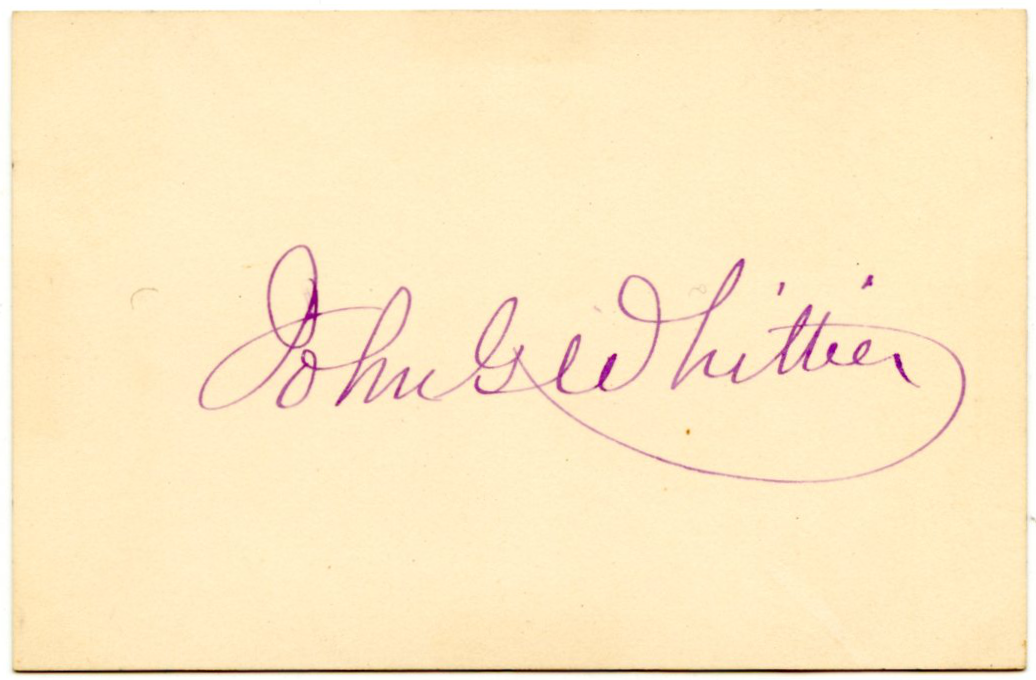 John G. Whittier